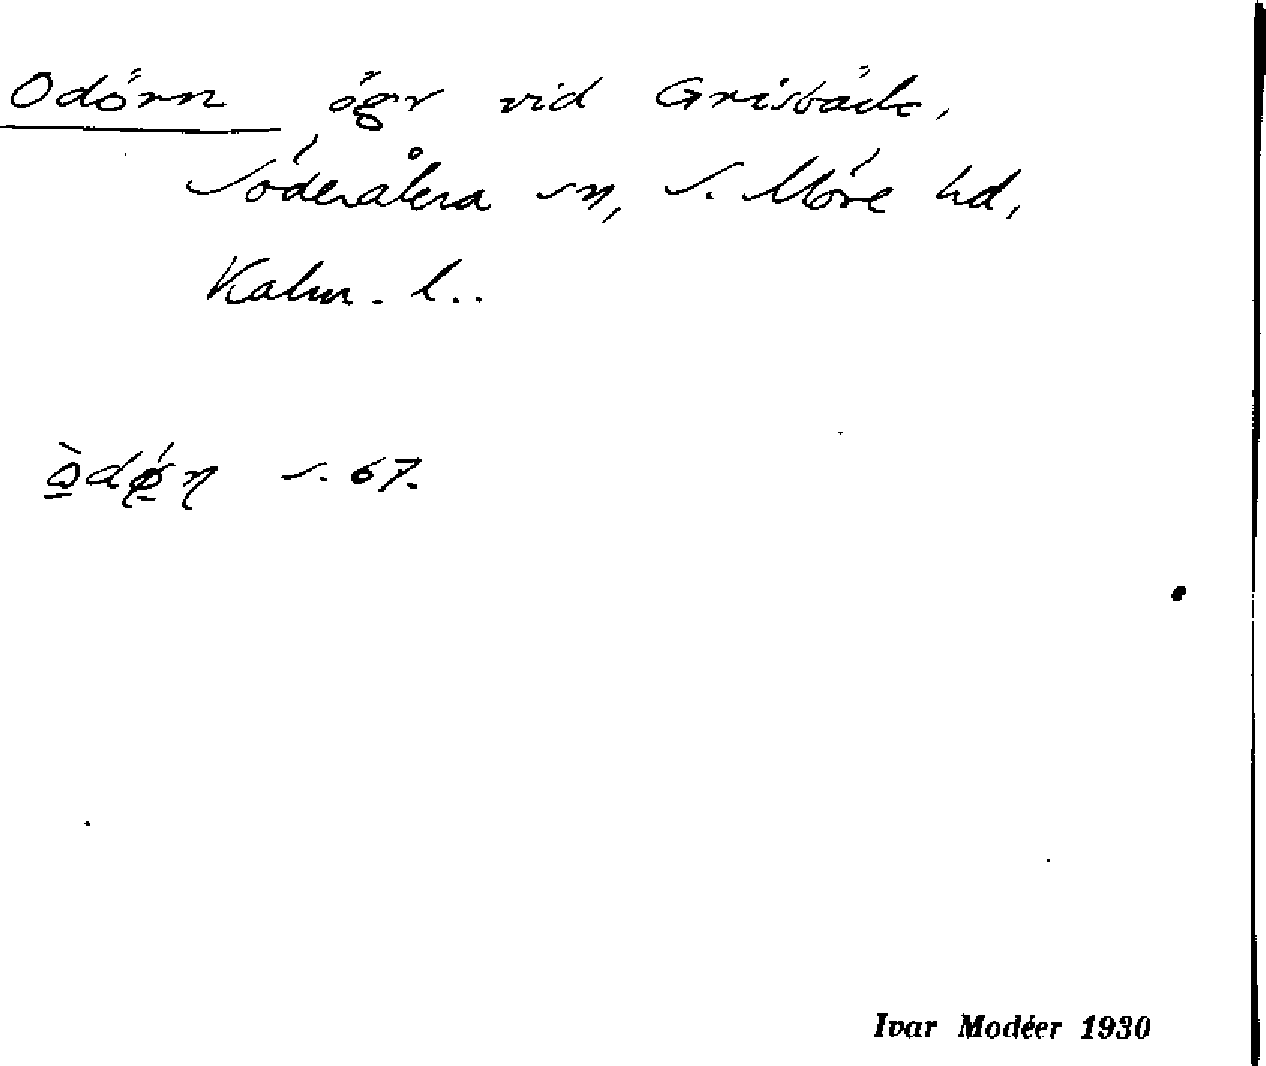 Odörn ögr vid Grisbäck,
Söderåkra sn, S. Möre hd,
Kalm. l..
s. 67.
Ivar Modéer 1930